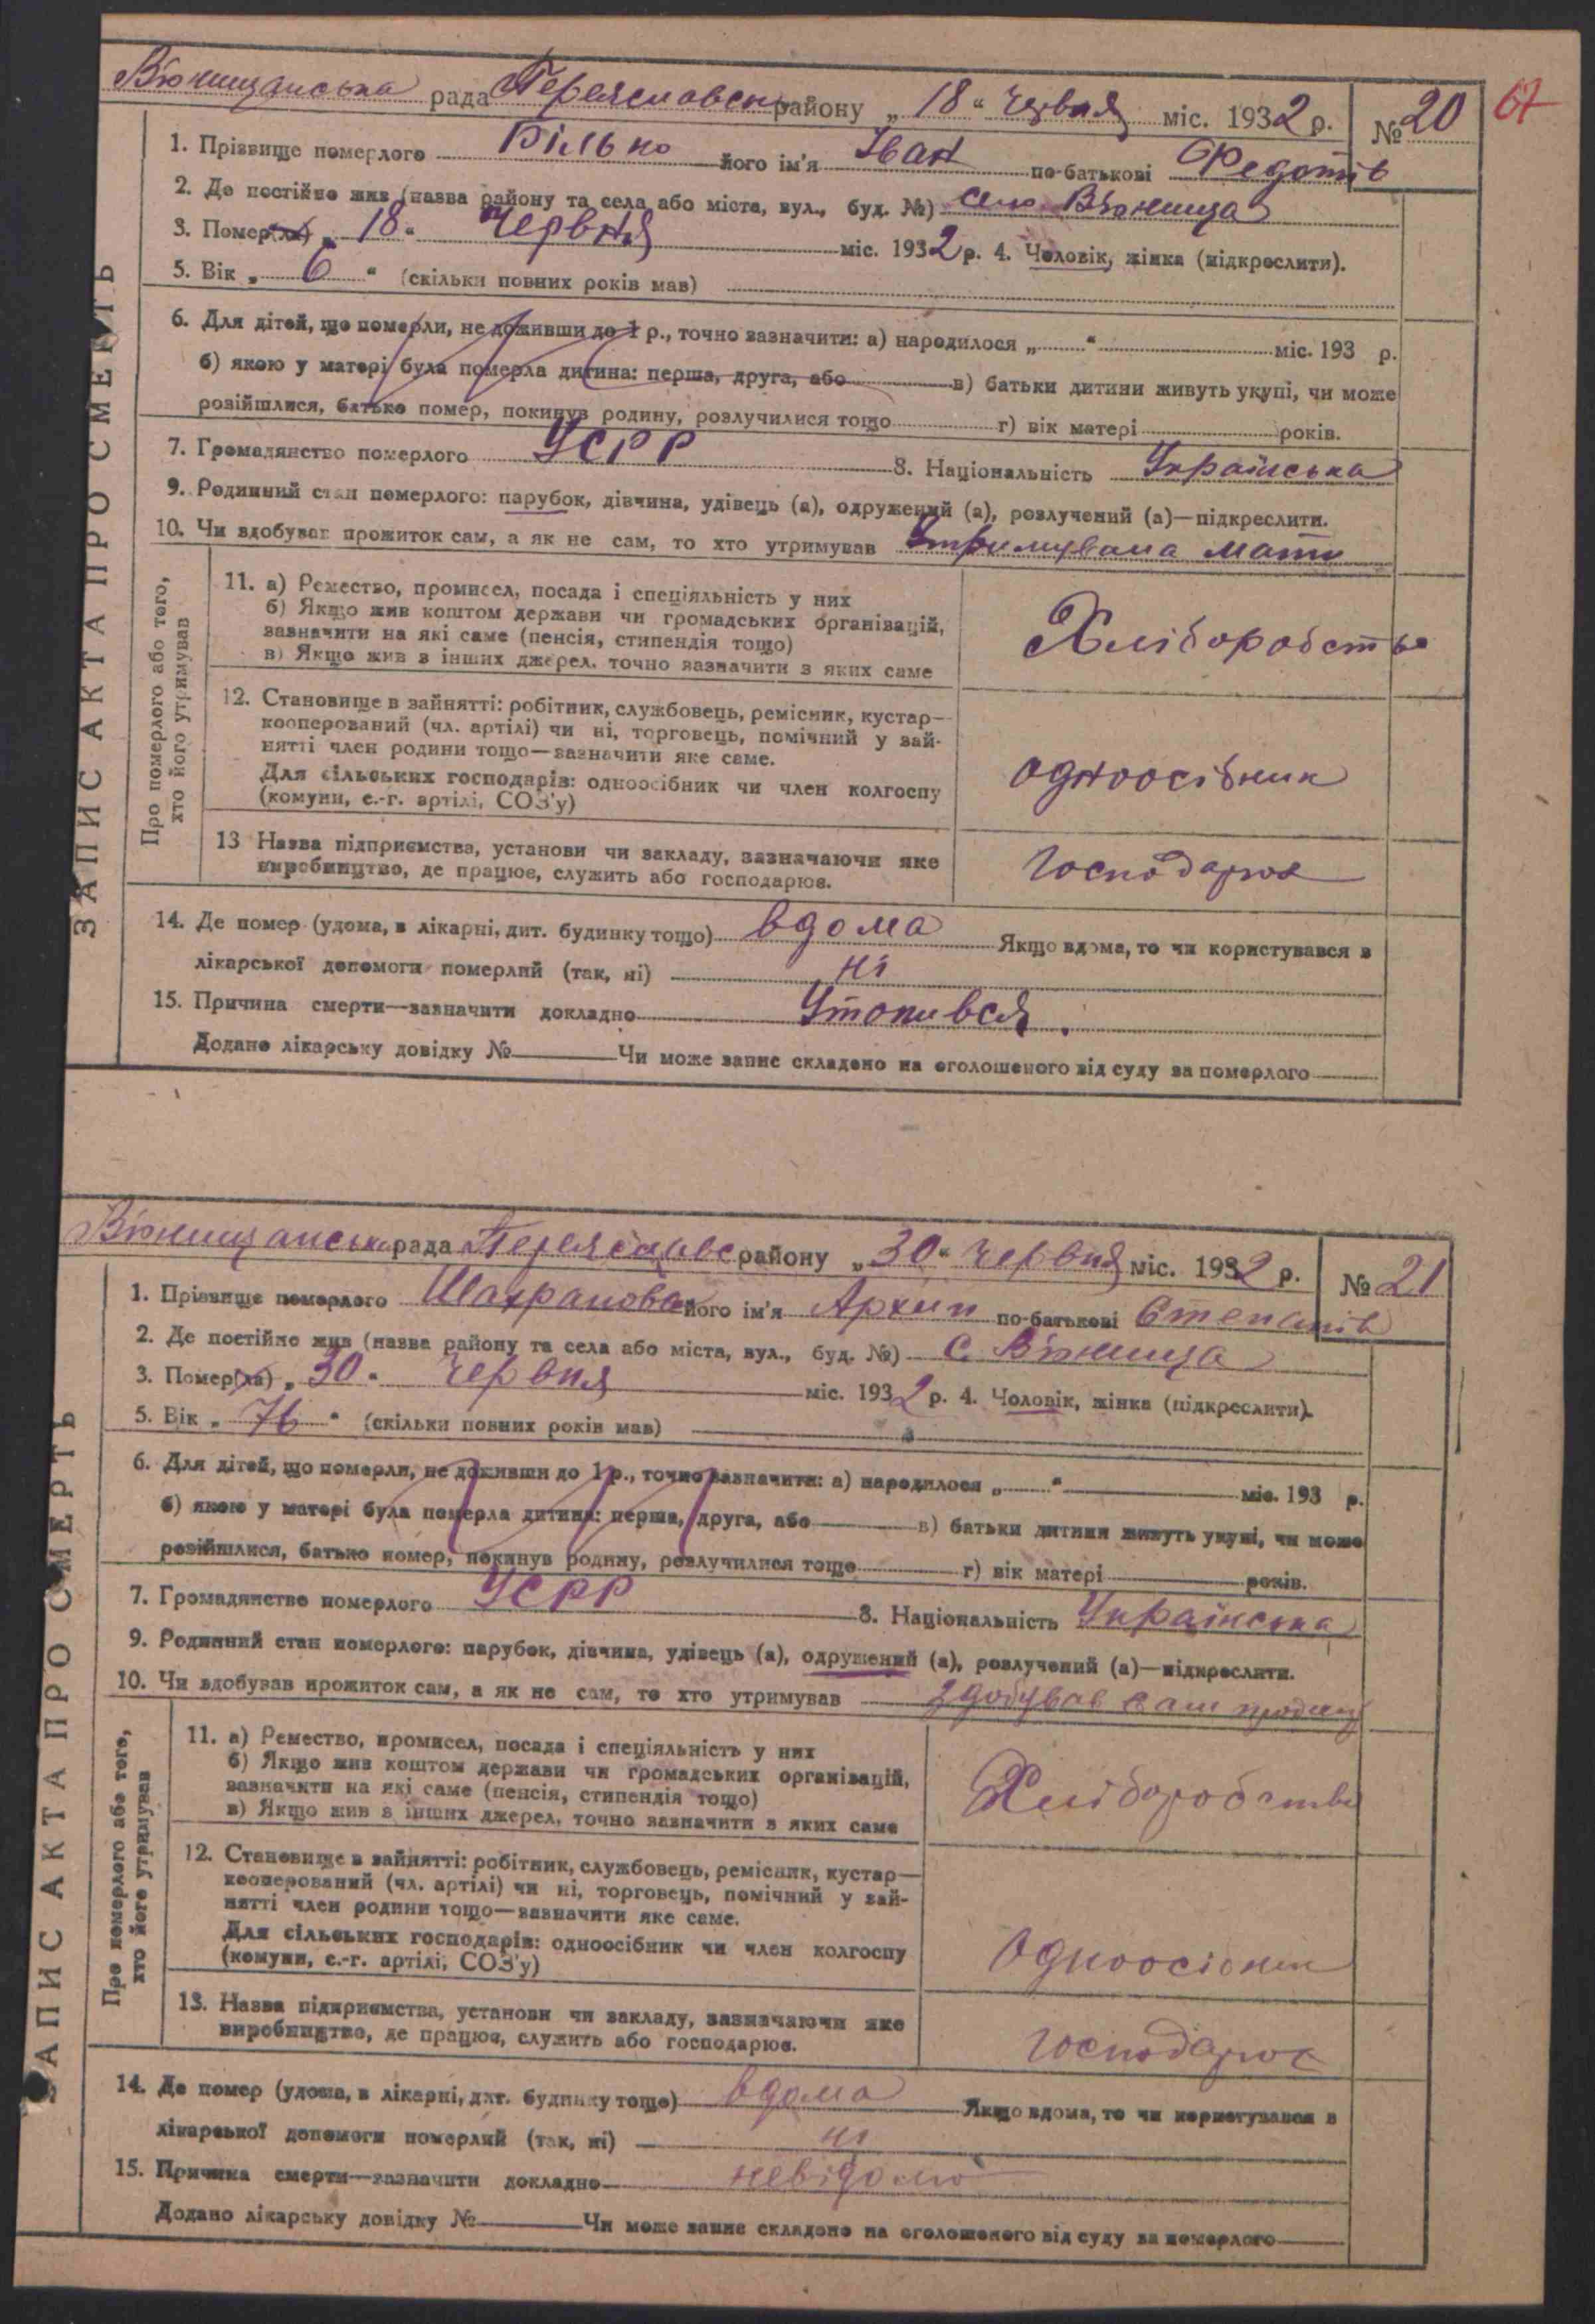 Вюнищанська рада Переяславськ району „18“ червня міс. 1932 р. № 20
67
1. Прізвище померлого Білько його ім'я Іван по-батькові Федотів
2. Де постійно жив (назва району та села або міста, вул., буд. №) село Вюнища
3. Помер(ла) „18“ червня міс. 1932 р. 4. Чоловік, жінка (підкреслити).
5. Вік „6“ (скільки повних років мав)
6. Для дітей, що померли, не доживши до 1 р., точно зазначити: а) народилося „ “ міс. 193 р.
б) якою у матері була померла дитина: перша, друга, або в) батьки дитини живуть укупі, чи може
розійшлися, батько помер, покинув родину, розлучилися тощо г) вік матері років.
7. Громадянство померлого УСРР 8. Національність Українська
9. Родинний стан померлого: парубок, дівчина, удівець (а), одружений (а), розлучений (а)—підкреслити.
10. Чи здобував прожиток сам, а як не сам, то хто утримував Утримувала мати
ЗАПИС АКТА ПРО СМЕРТЬ
Про померлого або того,
хто його утримував
11. а) Ремество, промисел, посада і спеціяльність у них
б) Якщо жив коштом держави чи громадських організацій,
зазначити на які саме (пенсія, стипендія тощо)
в) Якщо жив з інших джерел, точно зазначити з яких саме
Хліборобство
12. Становище в зайнятті: робітник, службовець, ремісник, кустар—
кооперований (чл. артілі) чи ні, торговець, помічний у зай-
нятті член родини тощо—зазначити яке саме.
Для сільських господарів: одноосібник чи член колгоспу
(комуни, с.-г. артілі, СОЗ'у)
одноосібник
13 Назва підприємства, установи чи закладу, зазначаючи яке
виробництво, де працює, служить або господарює.
господарює
14. Де помер (удома, в лікарні, дит. будинку тощо) вдома Якщо вдома, то чи користувався з
лікарської допомоги померлий (так, ні) ні
15. Причина смерти—зазначити докладно Утопився.
Додано лікарську довідку № Чи може запис складено на оголошеного від суду за померлого
Вюнищанська рада Переяславс району „30“ червня міс. 1932 р. № 21
1. Прізвище померлого його ім'я Архип по-батькові Степанів
2. Де постійно жив (назва району та села або міста, вул., буд. №) с. Вюнища
3. Помер(ла) „30“ червня міс. 1932 р. 4. Чоловік, жінка (підкреслити).
5. Вік „76“ (скільки повних років мав)
6. Для дітей, що померли, не доживши до 1 р., точно зазначити: а) народилося „ “ міс. 193 р.
б) якою у матері була померла дитина: перша, друга, або в) батьки дитини живуть укупі, чи може
розійшлися, батько помер, покинув родину, розлучилися тощо г) вік матері років.
7. Громадянство померлого УСРР 8. Національність Українська
9. Родинний стан померлого: парубок, дівчина, удівець (а), одружений (а), розлучений (а)—підкреслити.
10. Чи здобував прожиток сам, а як не сам, то хто утримував здобував сам
ЗАПИС АКТА ПРО СМЕРТЬ
Про померлого або того,
хто його утримував
11. а) Ремество, промисел, посада і спеціяльність у них
б) Якщо жив коштом держави чи громадських організацій,
зазначити на які саме (пенсія, стипендія тощо)
в) Якщо жив з інших джерел, точно зазначити з яких саме
Хліборобство
12. Становище в зайнятті: робітник, службовець, ремісник, кустар—
кооперований (чл. артілі) чи ні, торговець, помічний у зай-
нятті член родини тощо—зазначити яке саме.
Для сільських господарів: одноосібник чи член колгоспу
(комуни, с.-г. артілі, СОЗ'у)
Одноосібник
13. Назва підприємства, установи чи закладу, зазначаючи яке
виробництво, де працює, служить або господарює.
господарює
14. Де помер (удома, в лікарні, дит. будинку тощо) вдома Якщо вдома, то чи користувався з
лікарської допомоги померлий (так, ні) ні
15. Причина смерти—зазначити докладно невідомо
Додано лікарську довідку № Чи може запис складено на оголошеного від суду за померлого